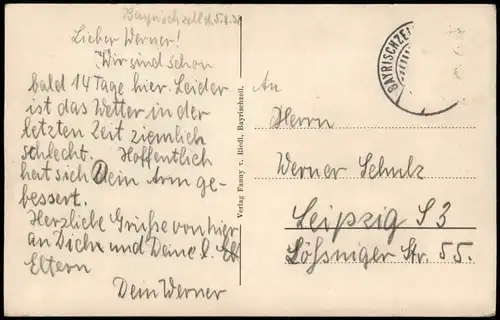 Bayrischzell d. 5.9.38
Lieber Werner!
Wir sind schon
bald 14 Tage hier. Leider
ist das Wetter in der
letzten Zeit ziemlich
schlecht. Hoffentlich
hat sich Dein Arm ge-
bessert.
Herzliche Grüße von hier
an Dich und Deine l.
Eltern
Dein Werner
Verlag Fanny v. Riedl, Bayrischzell.
BAYRISCHZELL
An
Herrn
Werner Schulz
Leipzig S 3
Lößniger Str. 55.